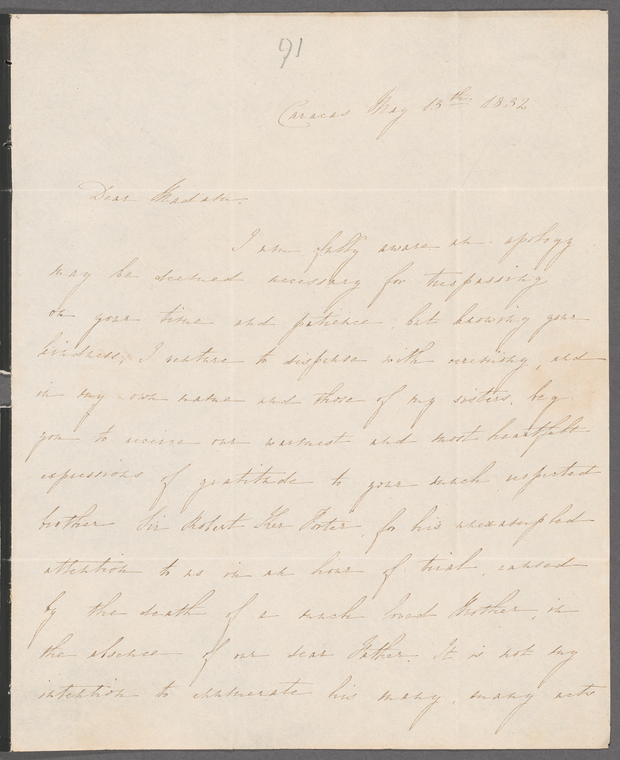 91
Caracas May 13th 1832
Dear Madam.
I am fully aware an apology
may be deemed necessary for trespassing
on your time and patience, but knowing your
kindness, I venture to dispense with ceremony, and
in my own name and those of my sisters, beg
you to receive our warmest and most heartfelt
expressions of gratitude to your much respected
brother Sir Robert Ker Porter, for his unexampled
attention to us in an hour of trial, caused
by the death of a much loved Mother, in
the absence of our dear Father. It is not my
intention to enumerate his many, many acts